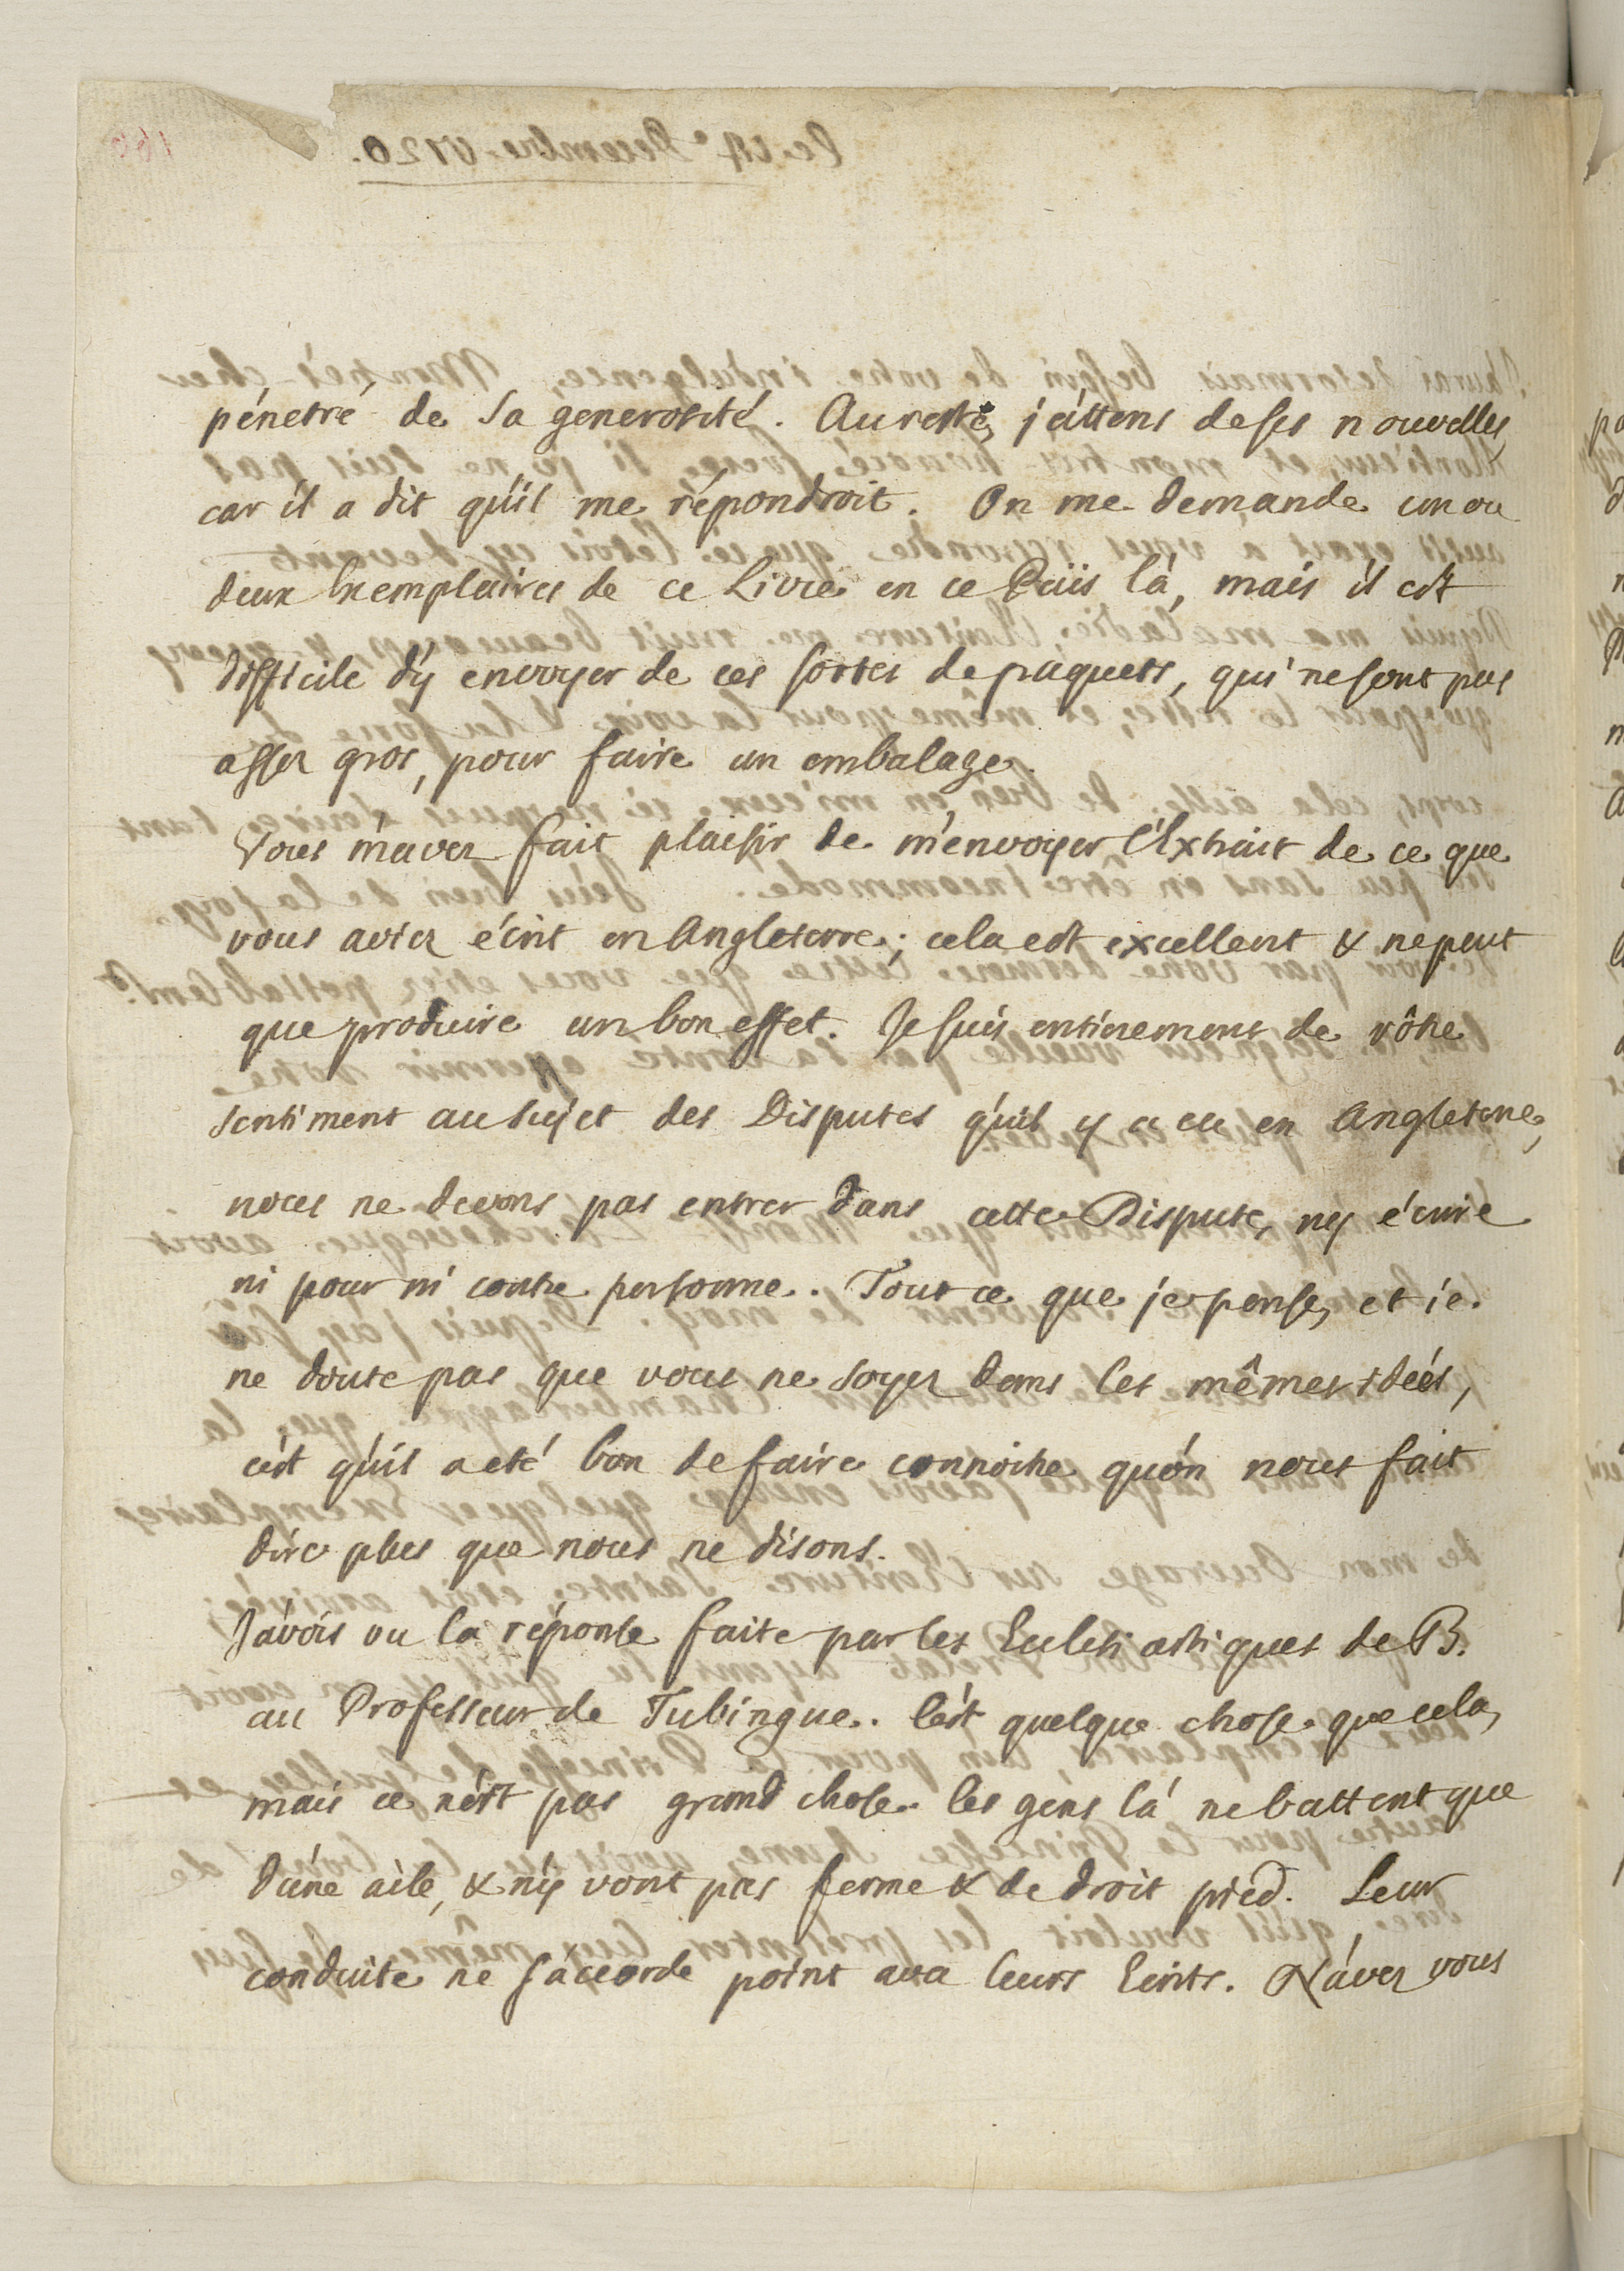 pénetré de sa generosité. Au reste, j'attens de ses nouvelles,
car il a dit qu'il me répondroit. On me demande un ou
deux Exemplaires de ce Livre en ce Païis là, mais il est
difficile d'y envoyer de ces sortes de paquets, qui ne sont pas
assez gros, pour faire un embalage.
Vous m'avez fait plaisir de m'envoyer l'Extrait de ce que
vous aviez écrit en Angleterre; cela est excellent & ne peut
que produire un bon effet. Je suis entierement de vôtre
sentiment au sujet des Disputes qu'il y a eu en Angleterre,
nous ne devons pas entrer dans cette Dispute, ny écrire
ni pour ni contre personne. Tout ce que je pense, et je
ne doute pas que vous ne soyez dans les mêmes idées,
c'est qu'il a eté bon de faire connoitre qu'on nous fait
dire plus que nous ne disons.
J'avois vu la réponse faite par les Eclesiastiques de B.
au Professeur de Tubingue. C'est quelque chose que cela,
mais ce n'est pas grand chose. Ces gens là ne battent que
d'une aile, & n'y vont pas ferme & de droit pied. Leur
conduite ne s'accorde point avec leurs Ecrits. N'avez vous